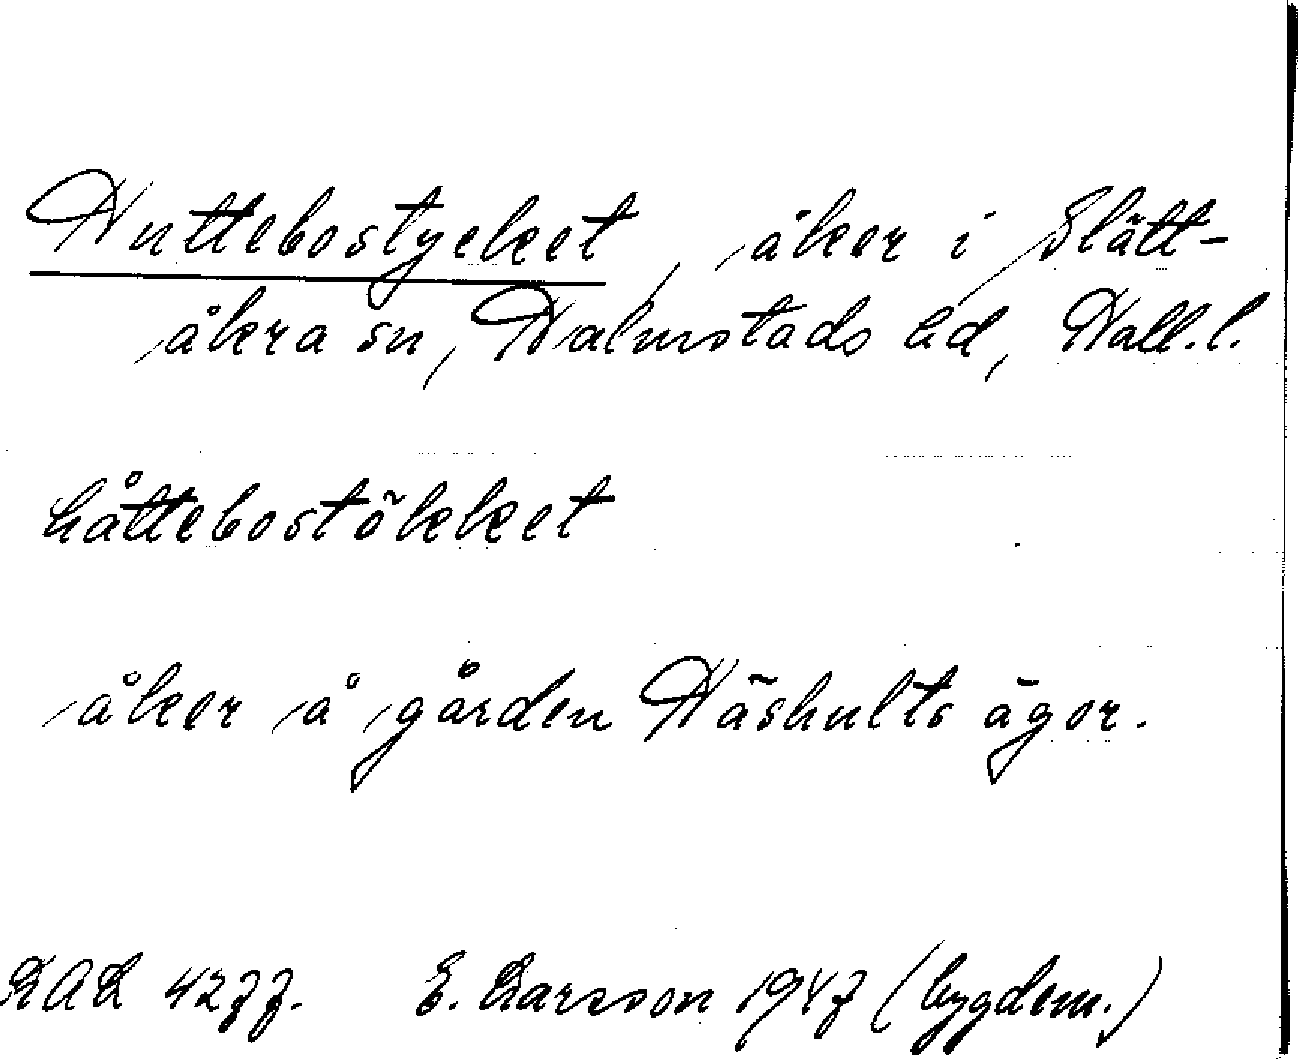 Huttebostycket, åker i Slätt-
åkra sn, Halmstads hd, Hall.l.
håttebostõkket
åker å gården Häshults ägor.
E. Larsson 1947 (bygdem.)